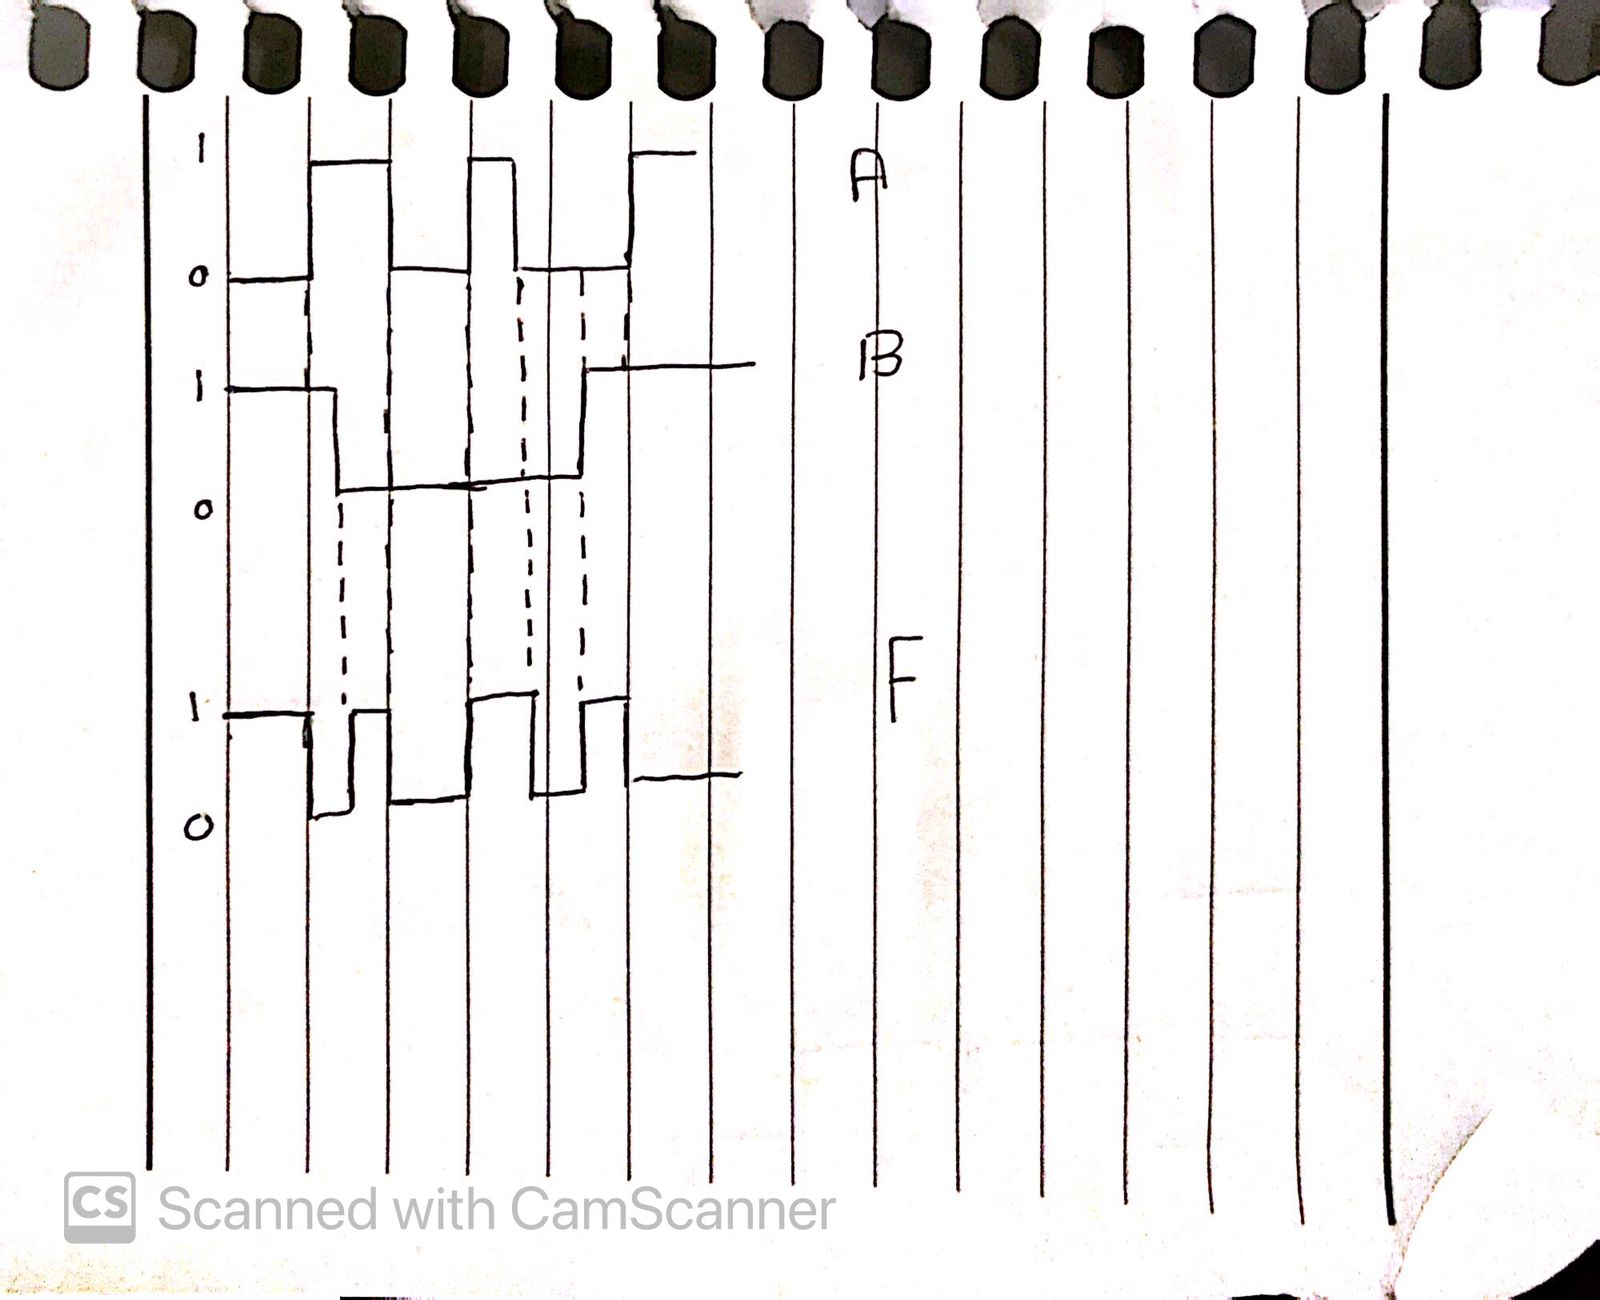 1
A
0
B
1
0
F
1
0
CS Scanned with CamScanner